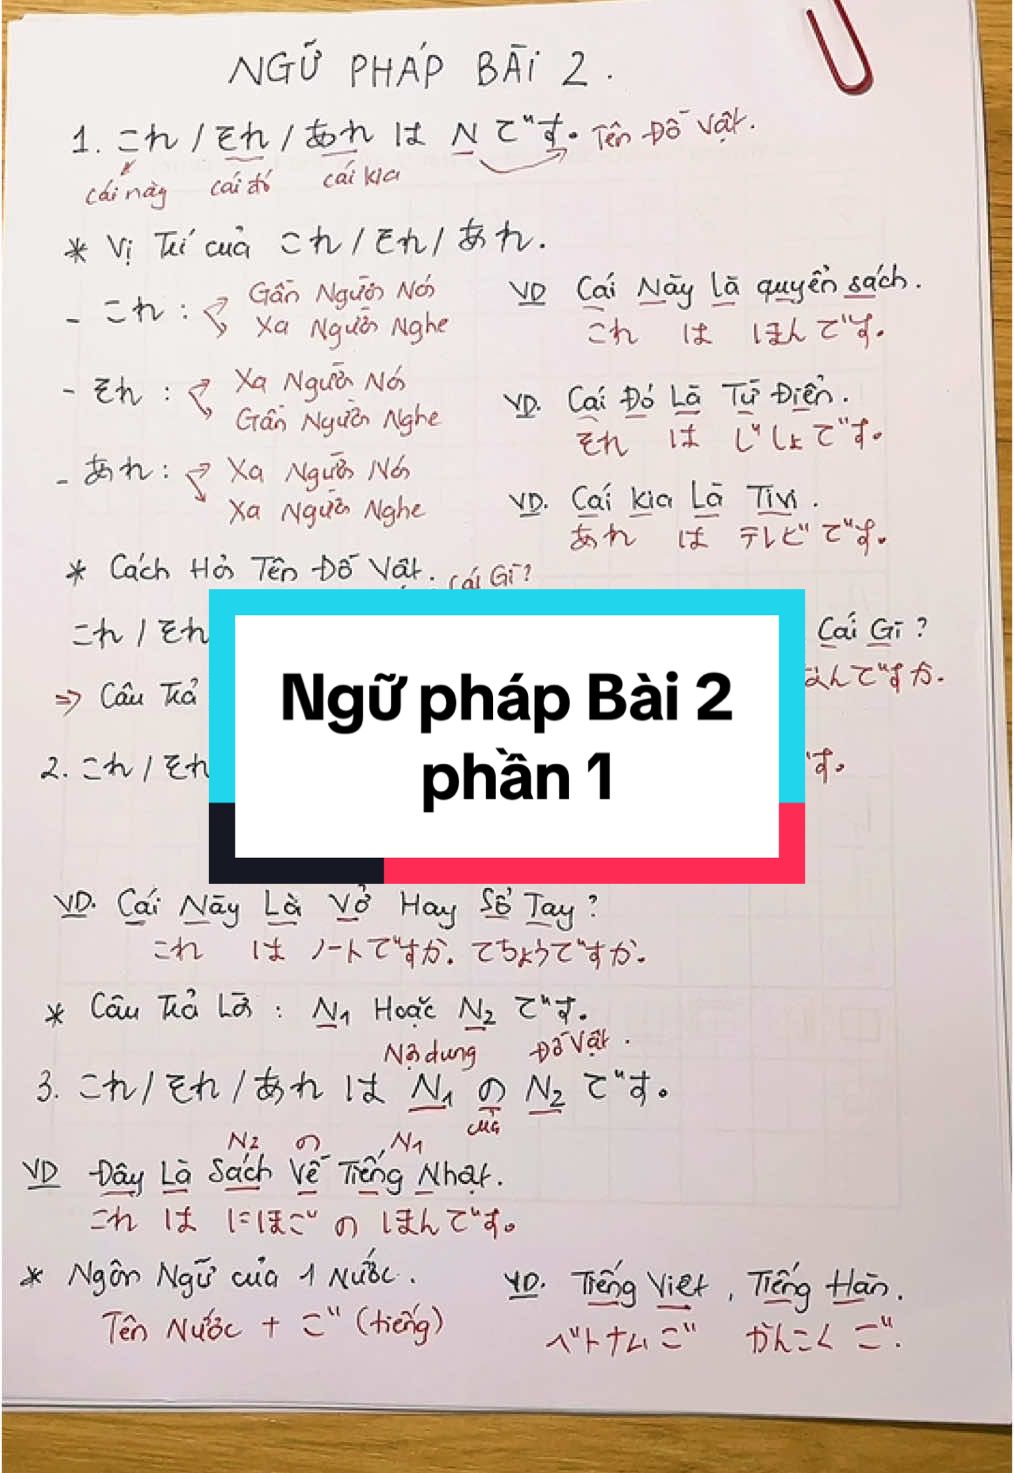 NGỮ PHÁP BÀI 2.
1. これ / それ / あれ は N です。 Tên Đồ Vật.
cái này cái đó cái kia
* Vị Trí của これ / それ / あれ.
- これ : Gần Người Nói
Xa Người Nghe
VD Cái Này Là quyển sách.
これ は ほんです。
- それ : Xa Người Nói
Gần Người Nghe
VD. Cái Đó Là Từ Điển.
それ は じしょです。
- あれ : Xa Người Nói
Xa Người Nghe
VD. Cái kia Là Tivi.
あれ は テレビです。
* Cách Hỏi Tên Đồ Vật. cái Gì?
これ / それ
Cái Gì ?
なんですか.
=> Câu Trả
2. これ / それ
す。
Ngữ pháp Bài 2
phần 1
VD. Cái Này Là Vở Hay Sổ Tay ?
これ は ノートですか. てちょうですか.
* Câu Trả Lời : N1 Hoặc N2 です.
Nội dung Đồ Vật.
3. これ / それ / あれ は N1 の N2 です。
của
N2 の N1
VD Đây Là Sách Về Tiếng Nhật.
これ は にほご の ほんです。
* Ngôn Ngữ của 1 Nước.
Tên Nước + ご (tiếng)
VD. Tiếng Việt, Tiếng Hàn.
ベトナムご かんこくご.